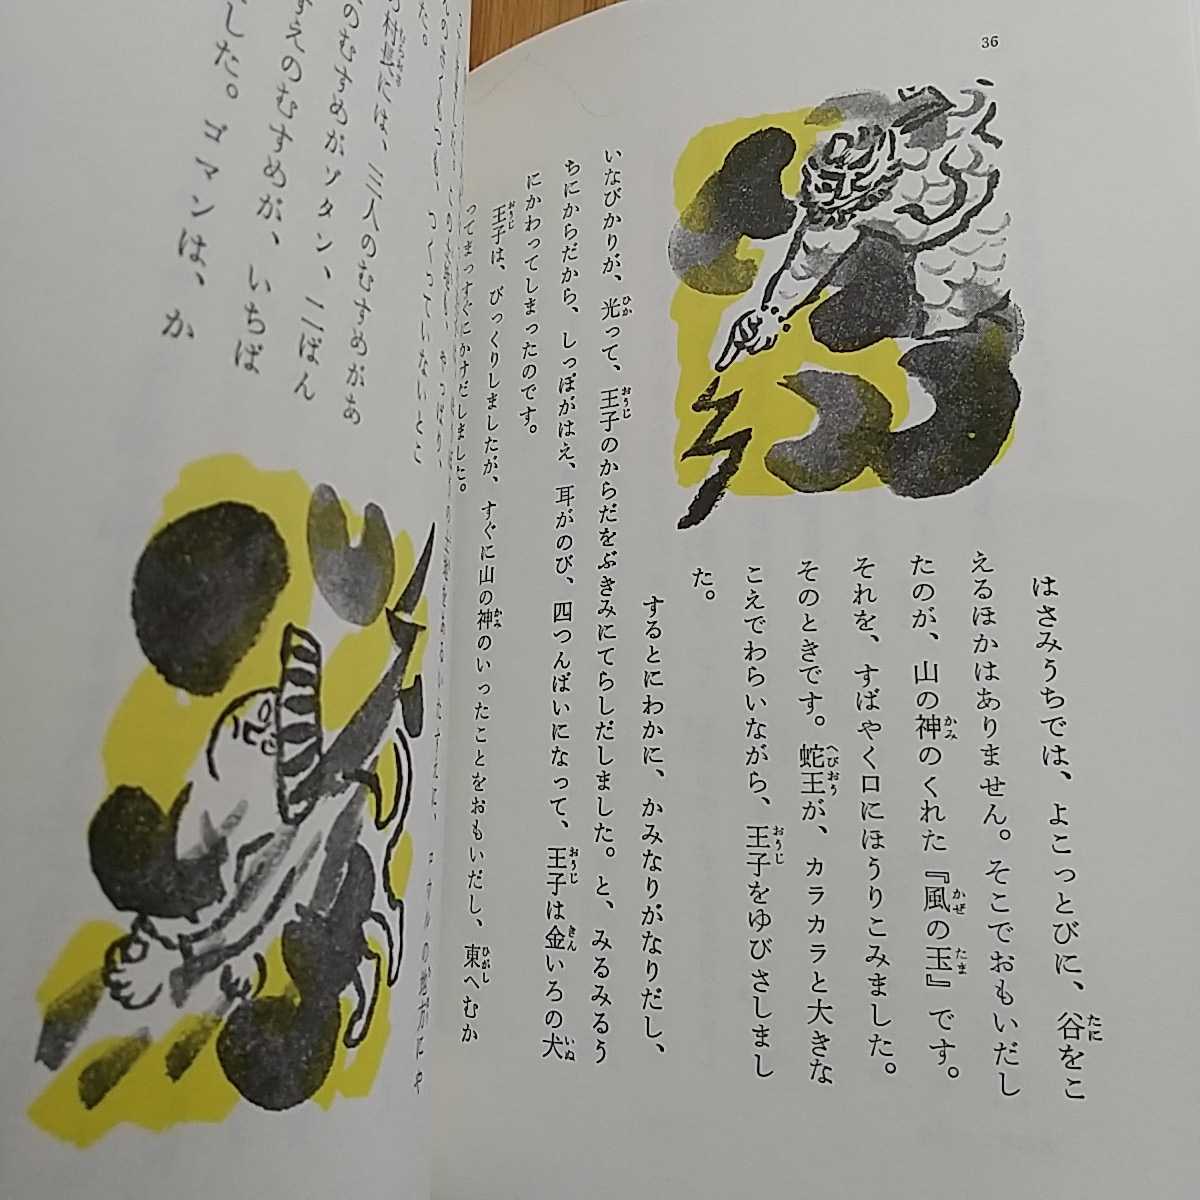 36
はさみうちでは、よこっとびに、谷をこ
えるほかはありません。そこでおもいだし
たのが、山の神のくれた『風の玉』です。
それを、すばやく口にほうりこみました。
そのときです。蛇王が、カラカラと大きな
こえでわらいながら、王子をゆびさしまし
た。
するとにわかに、かみなりがなりだし、
いなびかりが、光って、王子のからだをぶきみにてらしだしました。と、みるみるう
ちにからだから、しっぽがはえ、耳がのび、四つんばいになって、王子は金いろの犬
にかわってしまったのです。
王子は、びっくりしましたが、すぐに山の神のいったことをおもいだし、東へむか
ってまっすぐにかけだしました。
の地方にや
つくっていないとこ
た。
村長には、三人のむすめがあ
のむすめがゾタン、二ばん
すえのむすめが、いちば
した。ゴマンは、か